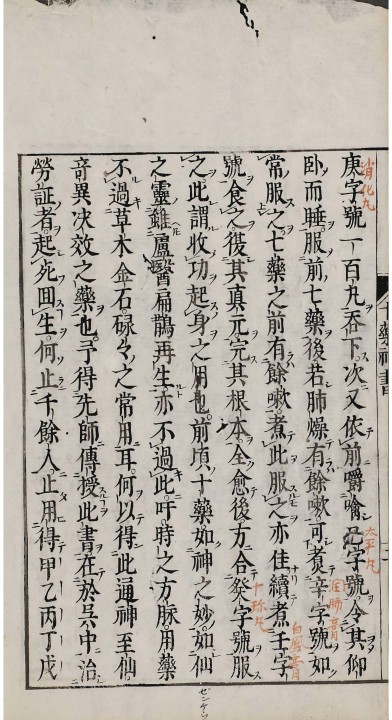 消化丸
庚字號一百丸呑下次又依前嚼噙己字號令其仰
太平丸
卧而睡服前七藥後若肺燥有餘嗽可煑辛字號如
潤肺膏
常服之七藥之前有餘嗽煮此服之亦佳續煮壬字
白鳳膏
號食之復其真元完其根本全愈後方合癸字號服
十珍丸
之此謂收功起身之用也前項十藥如神之妙如仙
之靈雖盧醫扁鵲再生亦不過此吁時之方脉用藥
不過草木金石碌々之常用耳何以得此通神至仙
竒異决效之藥也予得先師傳授此書在於呉中治
勞証者起死回生何止千餘人止用得甲乙丙丁戊